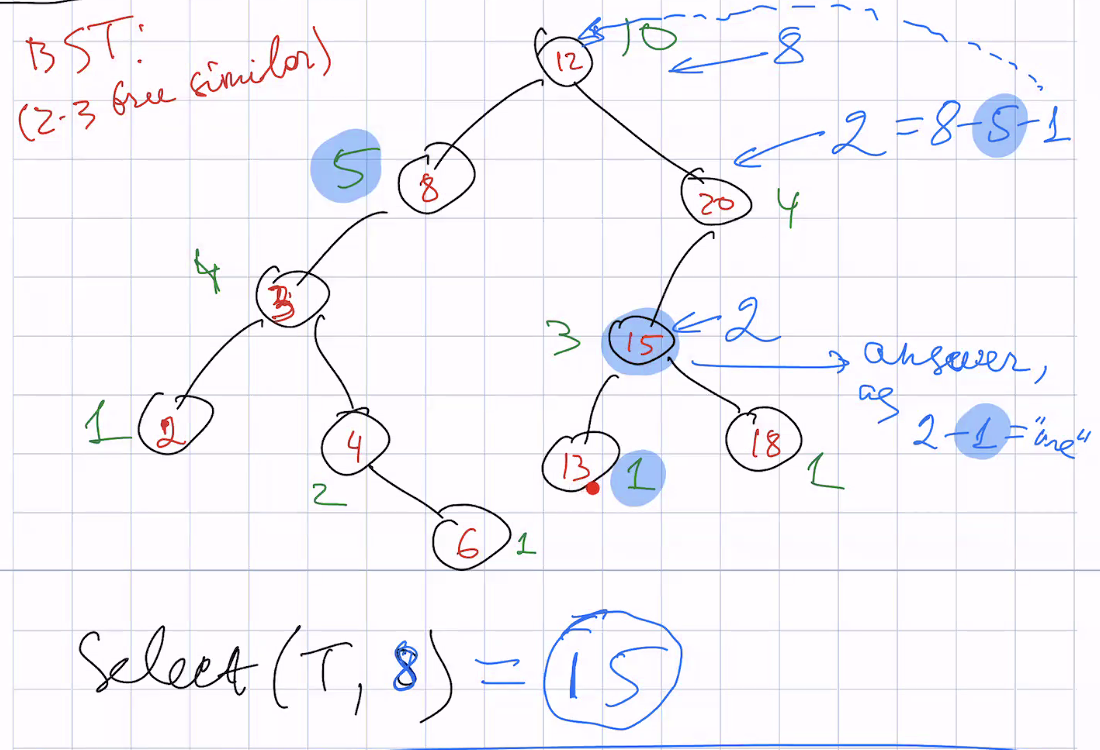 BST:
(2-3 tree similar)
12
10
8
2 = 8-5-1
5
8
20
4
4
3
3
15
2
answer,
as
2-1="one"
1
2
4
2
13
1
18
1
6
1
Select(T, 8) = 15